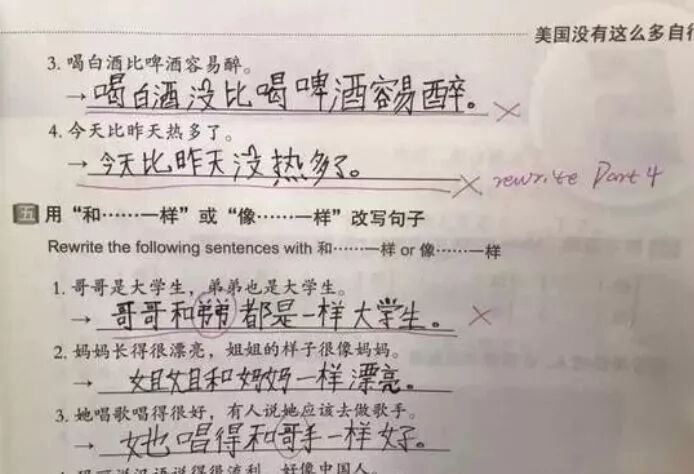 美国没有这么多自行
3. 喝白酒比啤酒容易醉。
→ 喝白酒没比喝啤酒容易醉。
4. 今天比昨天热多了。
→ 今天比昨天没热多了。
rewrite Part 4
五 用“和……一样”或“像……一样”改写句子
Rewrite the following sentences with 和……一样 or 像……一样
1. 哥哥是大学生，弟弟也是大学生。
→ 哥哥和弟弟都是一样大学生。
2. 妈妈长得很漂亮，姐姐的样子很像妈妈。
→ 姐姐和妈妈一样漂亮。
3. 她唱歌唱得很好，有人说她应该去做歌手。
→ 她唱得和哥手一样好。
说汉语说得很流利，好像中国人。